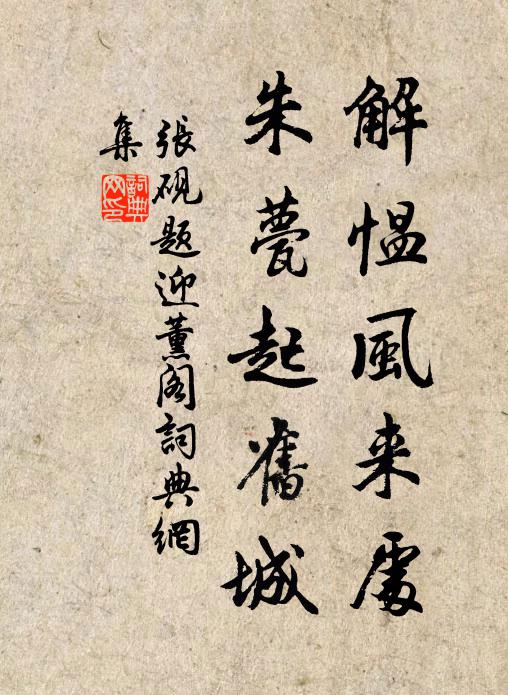 解愠風来處
朱甍起舊城
張砚题迎薰阁詞典網
集
詞典
网印